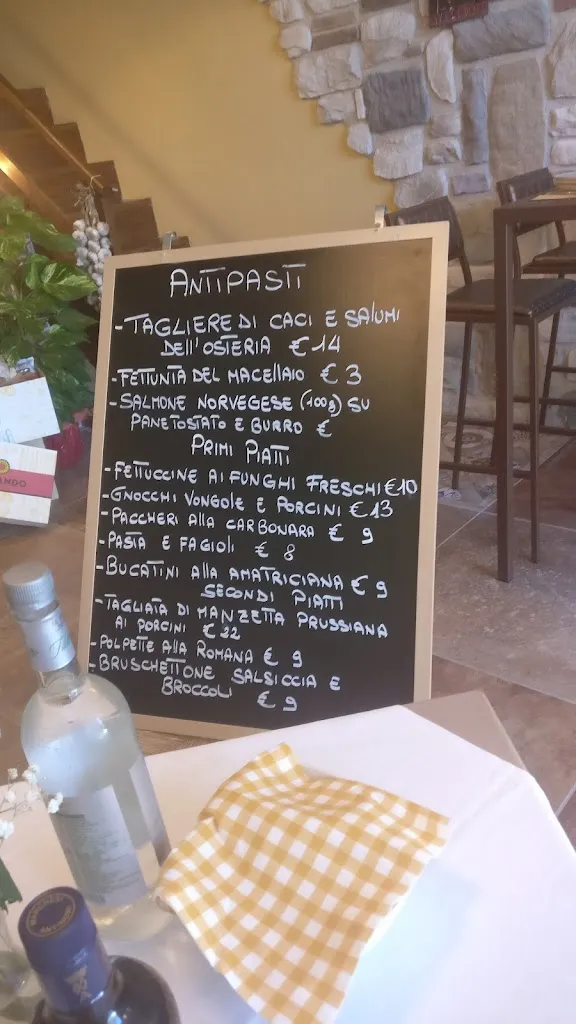 ANTIPASTI
- TAGLIERE DI CACI E SALUMI
DELL'OSTERIA € 14
- FETTUNTA DEL MACELLAIO € 3
- SALMONE NORVEGESE (100g) SU
PANETOSTATO E BURRO €
PRIMI PIATTI
- FETTUCCINE AI FUNGHI FRESCHI €10
- GNOCCHI VONGOLE E PORCINI €13
- PACCHERI ALLA CARBONARA € 9
- PASTA E FAGIOLI € 8
- BUCATINI ALLA AMATRICIANA € 9
SECONDI PIATTI
- TAGLIATA DI MANZETTA PRUSSIANA
AI PORCINI € 22
- POLPETTE ALLA ROMANA € 9
- BRUSCHETTONE SALSICCIA E
BROCCOLI € 9